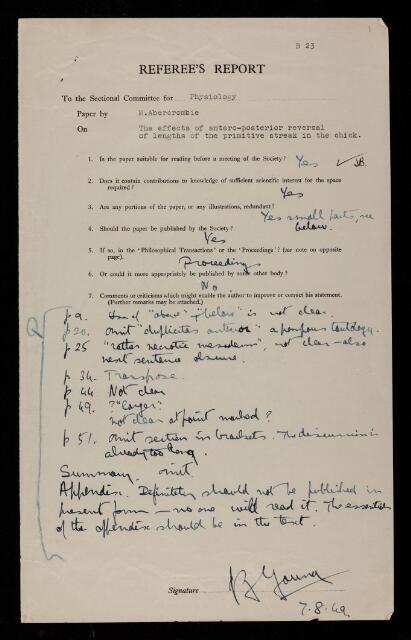 B 23
1
REFEREE'S REPORT
To the Sectional Committee for Physiology
Paper by M.Abercrombie
On The effects of antero-posterior reversal
of lengths of the primitive streak in the chick.
1. Is the paper suitable for reading before a meeting of the Society? Yes
2. Does it contain contributions to knowledge of sufficient scientific interest for the space
required? Yes
3. Are any portions of the paper, or any illustrations, redundant? Yes small parts, see
below.
4. Should the paper be published by the Society?
Yes
5. If so, in the 'Philosophical Transactions' or the 'Proceedings'? (see note on opposite
page). Proceedings
6. Or could it more appropriately be published by some other body?
No
7. Comments or criticisms which might enable the author to improve or correct his statement.
(Further remarks may be attached.)
p 9. Use of "above" & "below" is not clear.
p 20. omit "duplicitas anterior" a pompous tautology.
p 25 "rather necrotic mesoderm", not clear - also
next sentence obscure.
p 34. Transpose.
p 44 Not clear
p 49. ? "larger"
not clear at point marked?
p 51. omit section in brackets. The discussion is
already too long.
Summary. omit.
Appendix. Definitely should not be published in
present form - no one will read it. The essentials
of the appendix should be in the text.
Signature JZ Young
7.8.49